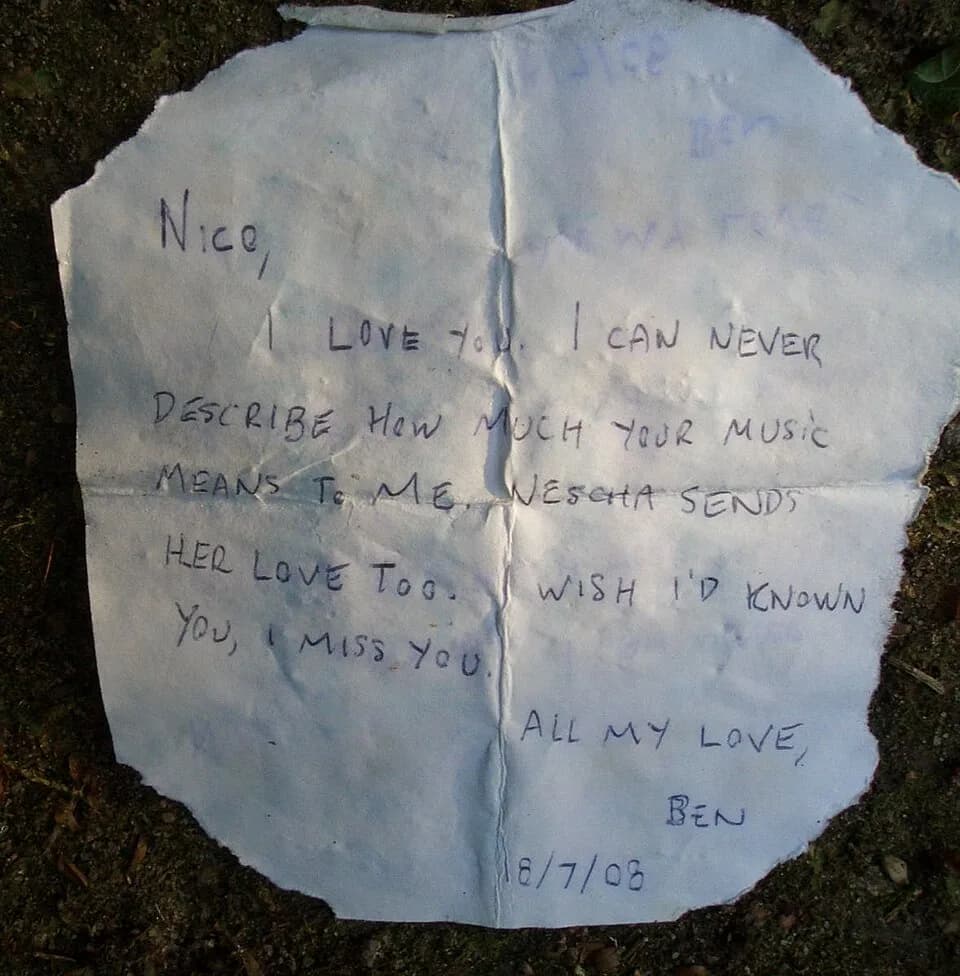 Nico,
I LOVE YOU. I CAN NEVER
DESCRIBE HOW MUCH YOUR MUSIC
MEANS TO ME. NESCHA SENDS
HER LOVE TOO. WISH I'D KNOWN
YOU, I MISS YOU.
ALL MY LOVE,
BEN
18/7/08